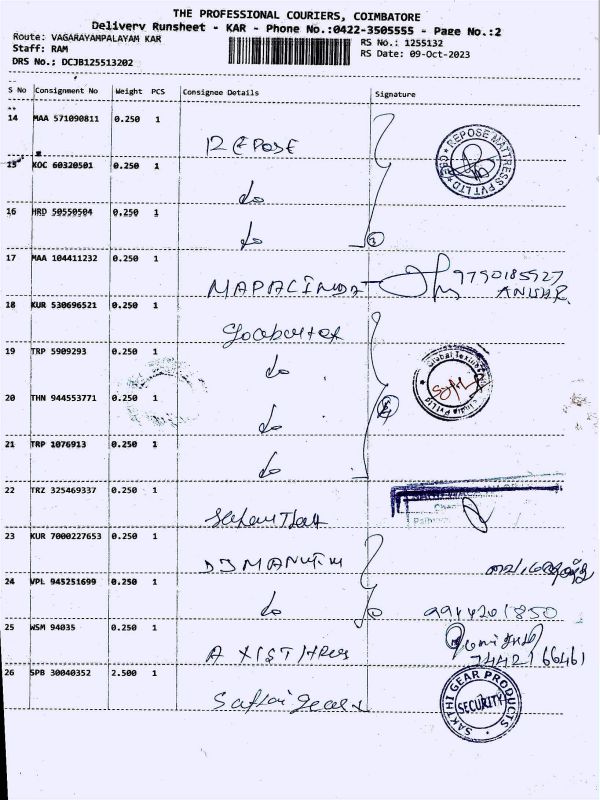 THE PROFESSIONAL COURIERS, COIMBATORE
Delivery Runsheet - KAR - Phone No.:0422-3505555 - Page No.:2
Route: VAGARAYAMPALAYAM KAR
RS No.: 1255132
Staff: RAM
RS Date: 09-Oct-2023
DRS No.: DCJB125513202
S No Consignment No Weight PCS Consignee Details Signature
14 MAA 571090811 0.250 1
REPOSE MATTRESS PVT LTD
15 KOC 60320501 0.250 1
do
16 HRD 50550504 0.250 1
do
17 MAA 104411232 0.250 1
9790185927
18 KUR 530696521 0.250 1
19 TRP 5909293 0.250 1
do
20 THN 944553771 0.250 1
do
21 TRP 1076913 0.250 1
do
22 TRZ 325469337 0.250 1
23 KUR 7000227653 0.250 1
24 VPL 945251699 0.250 1
do
9944201850
25 WSM 94035 0.250 1
7442166461
26 SPB 30040352 2.500 1
SAKTHI GEAR PRODUCTS
SECURITY